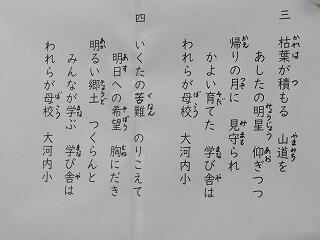 三　枯葉が積もる　山道を
あしたの明星　仰ぎつつ
帰りの月に　見守られ
かよい育てた　学び舎は
われらが母校　大河内小
四　いくたの苦難　のりこえて
明日への希望　胸にだき
明るい郷土　つくらんと
みんなが学ぶ　学び舎は
われらが母校　大河内小